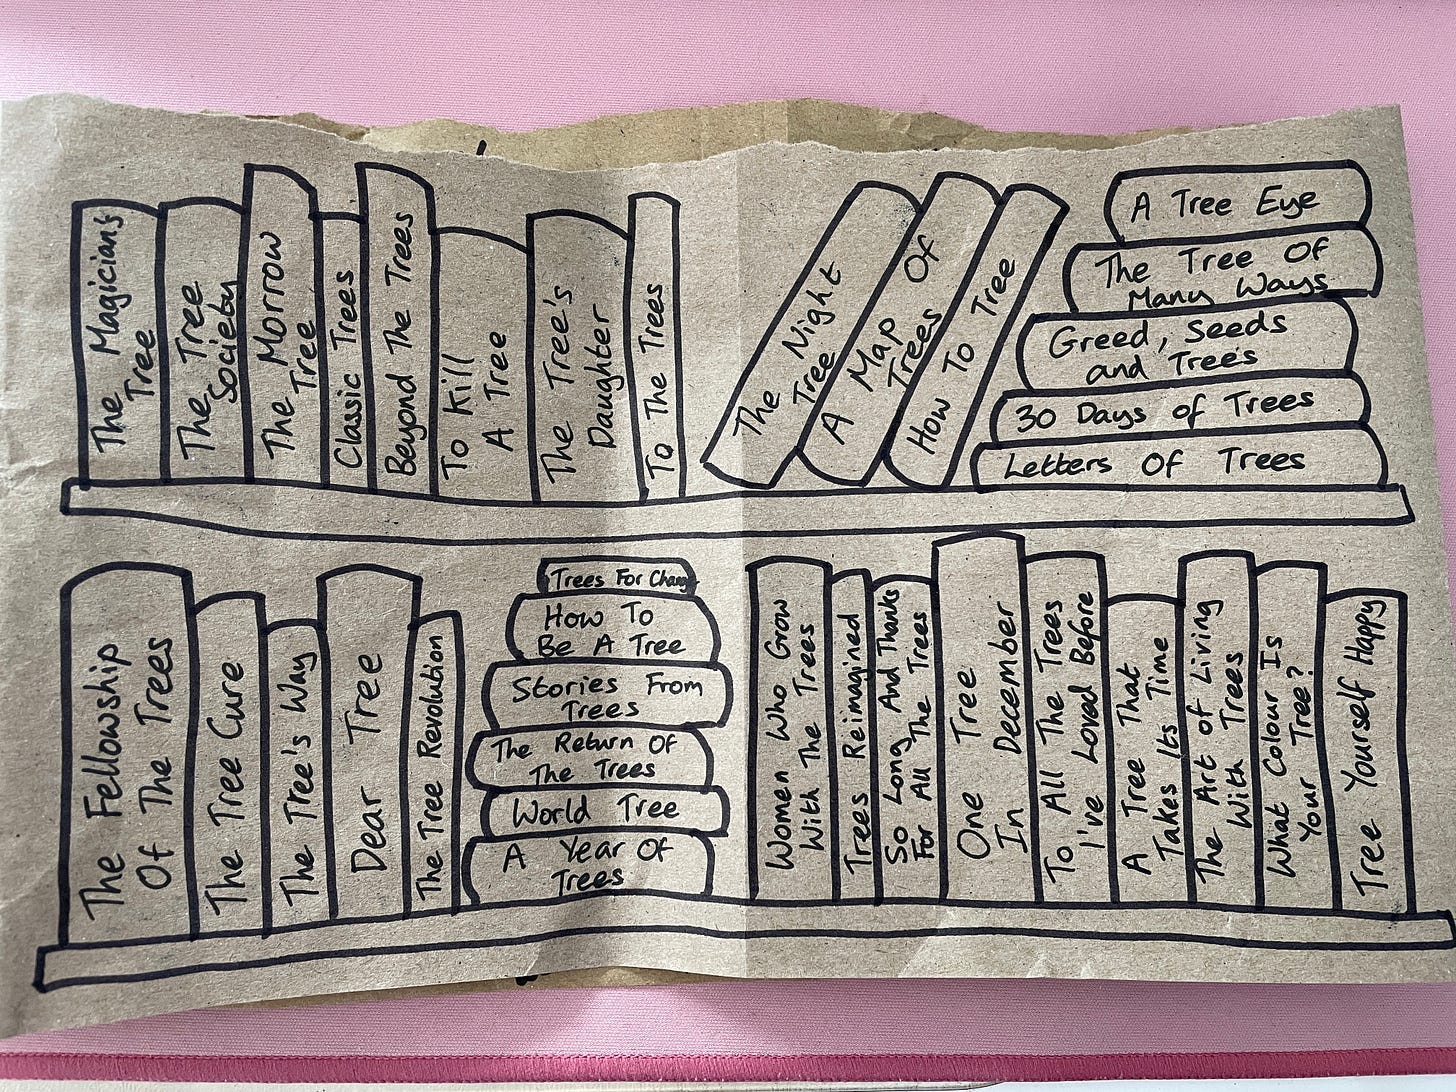 The Magicians
Tree
The Tree
Society
The Morrow
Tree
Classic Trees
Beyond The Trees
To Kill
A Tree
The Tree's
Daughter
To The Trees
The Night
Tree
A Map Of
Trees
How To Tree
A Tree Eye
The Tree Of
Many Ways
Greed, Seeds
and Trees
30 Days of Trees
Letters Of Trees
The Fellowship
Of The Trees
The Tree Cure
The Tree's Way
Dear Tree
The Tree Revolution
Trees For Change
How To
Be A Tree
Stories From
Trees
The Return Of
The Trees
World Tree
A Year Of
Trees
Women Who Grow
With The Trees
Trees Reimagined
So Long And Thanks
For All The Trees
One Tree
In December
To All The Trees
I've Loved Before
A Tree That
Takes Its Time
The Art of Living
With Trees
What Colour Is
Your Tree?
Tree Yourself Happy